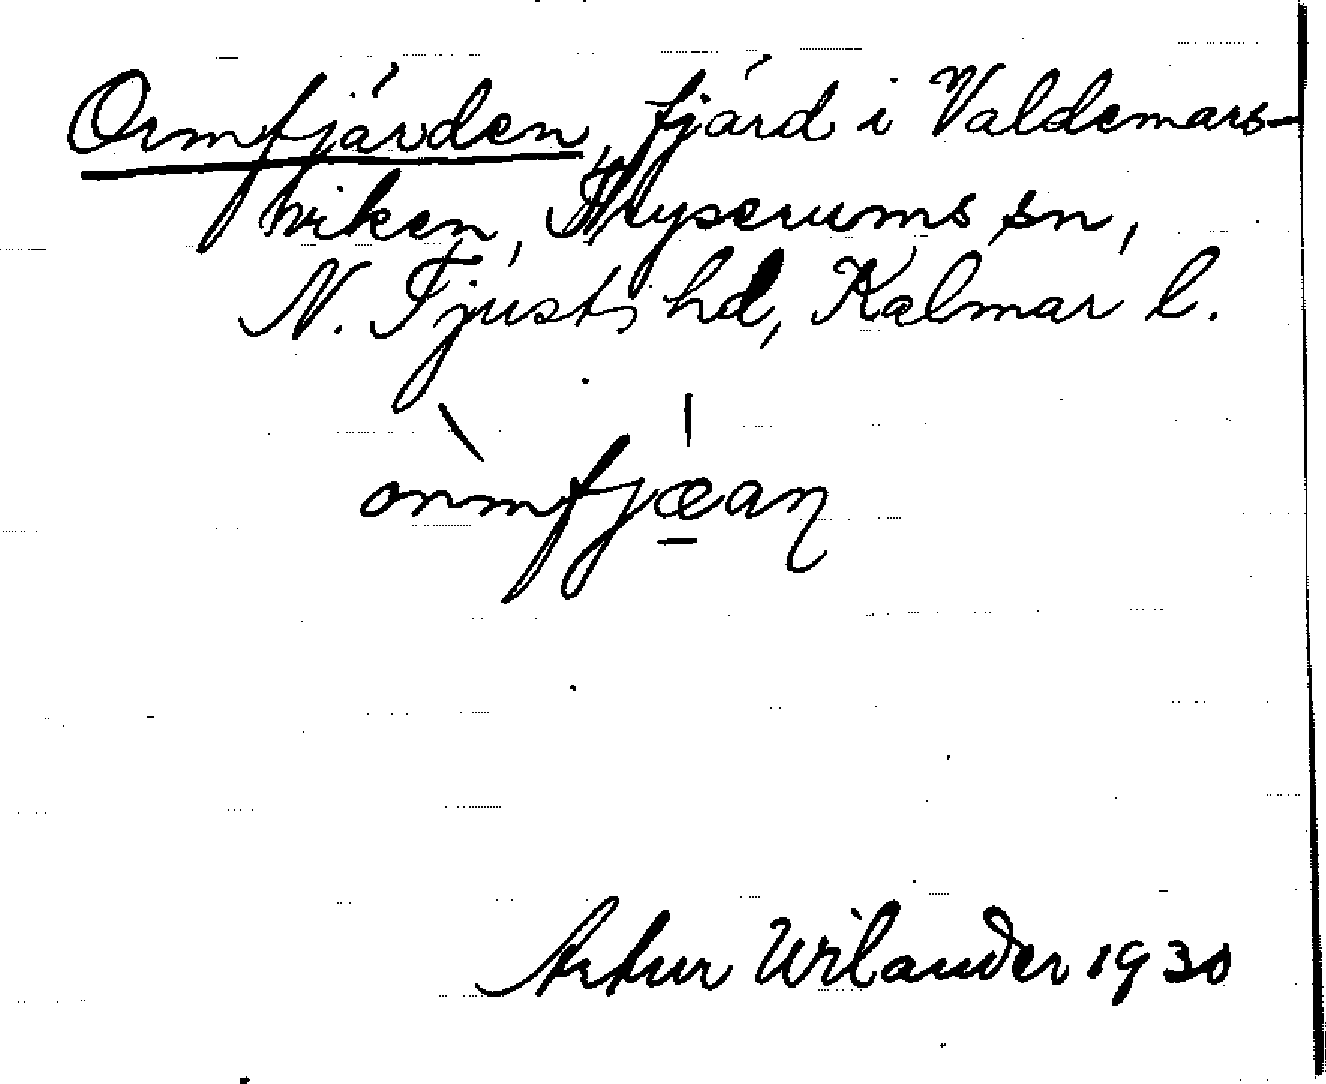 Ormfjärden, fjärd i Valdemars-
viken, Tryserums sn,
N. Tjusts hd, Kalmar l.
òrmfjæaɳ
Artur Wilander 1930